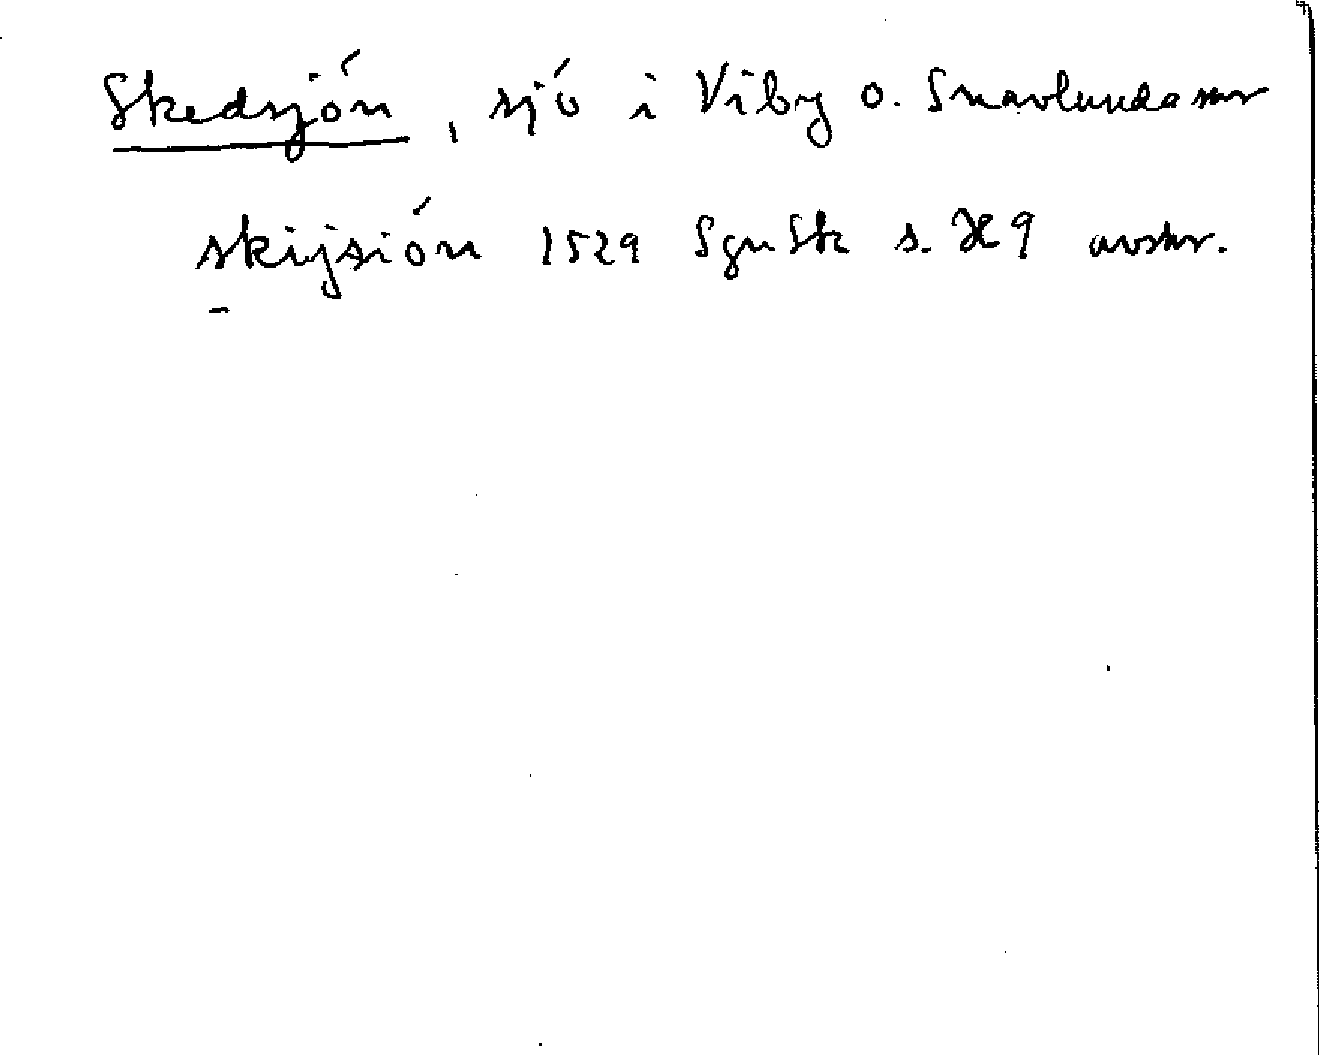 Skedsjön, sjö i Viby o. Snavlunda snr
skijsiön 1529 SgnSk s. 9 avskr.